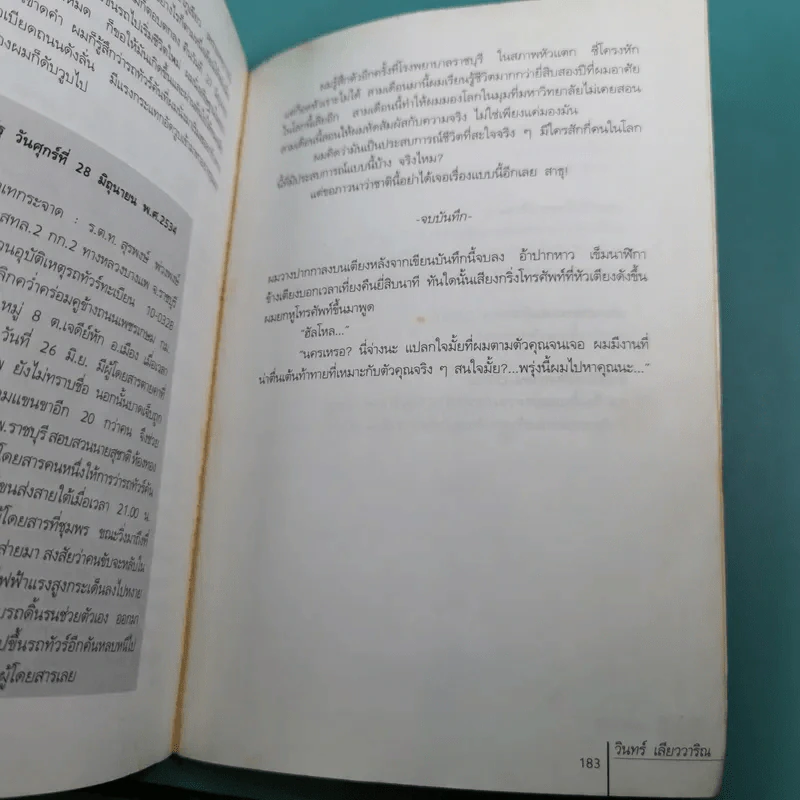 ขาดคำ ผมก็รู้สึกว่ารถทัวร์คันที่ผม
เบียดถนนดังลั่น มีแรงกระแทกอัด
างผมก็ดับวูบไป
วันศุกร์ที่ 28 มิถุนายน พ.ศ.2534
เทกระจาด : ร.ต.ท. สุรพงษ์
สทล.2 กก.2 ทางหลวงบางแพ จ.ราชบุรี
วนอุบัติเหตุรถทัวร์ทะเบียน 10-0328
ลิกคว่ำคร่อมคูข้างถนนเพชรเกษม กม.
หมู่ 8 ต.เจดีย์หัก อ.เมือง เมื่อเวลา
วันที่ 26 มิ.ย. มีผู้โดยสารตายคาที่
พ ยังไม่ทราบชื่อ นอกนั้นบาดเจ็บถูก
มแขนขาอีก 20 กว่าคน จึงช่วย
พ.ราชบุรี สอบสวนนายสุชาติ ห้องทอง
โดยสารคนหนึ่งให้การว่ารถทัวร์คัน
ขนส่งสายใต้เมื่อเวลา 21.00 น.
ผู้โดยสารที่ชุมพร ขณะวิ่งมาถึงที่
ส่ายมา สงสัยว่าคนขับจะหลับใน
ไฟฟ้าแรงสูงกระเด็นลงไปหงาย
บรถดิ้นรนช่วยตัวเอง ออกมา
ปขึ้นรถทัวร์อีกคันหลบหนีไป
ผู้โดยสารเลย
ผมรู้สึกตัวอีกครั้งที่โรงพยาบาลราชบุรี ในสภาพหัวแตก ซี่โครงหัก
แต่ก็อดหัวเราะไม่ได้ สามเดือนมานี้ผมเรียนรู้ชีวิตมากกว่ายี่สิบสองปีที่ผมอาศัย
ในโลกนี้เสียอีก สามเดือนนี้ทำให้ผมมองโลกในมุมที่มหาวิทยาลัยไม่เคยสอน
สามเดือนนี้สอนให้ผมหัดสัมผัสกับความจริง ไม่ใช่เพียงแค่มองมัน
ผมคิดว่ามันเป็นประสบการณ์ชีวิตที่สะใจจริง ๆ มีใครสักกี่คนในโลก
นี้ที่มีประสบการณ์แบบนี้บ้าง จริงไหม?
แต่ขอภาวนาว่าชาตินี้อย่าได้เจอเรื่องแบบนี้อีกเลย สาธุ!
-จบบันทึก-
ผมวางปากกาลงบนเตียงหลังจากเขียนบันทึกนี้จบลง อ้าปากหาว เข็มนาฬิกา
ข้างเตียงบอกเวลาเที่ยงคืนยี่สิบนาที ทันใดนั้นเสียงกริ่งโทรศัพท์ที่หัวเตียงดังขึ้น
ผมยกหูโทรศัพท์ขึ้นมาพูด
“ฮัลโหล...”
“นครเหรอ? นี่จ่างนะ แปลกใจมั้ยที่ผมตามตัวคุณจนเจอ ผมมีงานที่
น่าตื่นเต้นท้าทายที่เหมาะกับตัวคุณจริง ๆ สนใจมั้ย?...พรุ่งนี้ผมไปหาคุณนะ...”
183
วินทร์ เลียววาริณ